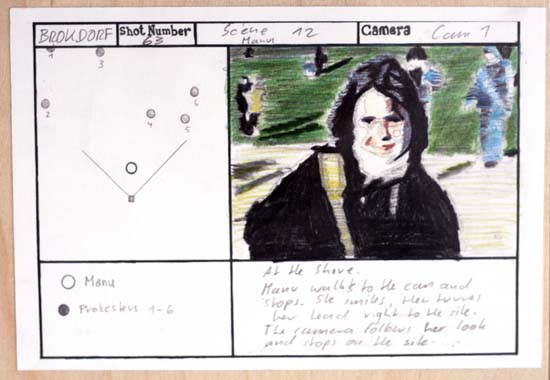 BROKDORF Shot Number Scene 12 Camera Cam 1
63 Manu
1 3
2 6
4 5
Manu
Protesters 1-6
At the Shore.
Manu walks to the cam and
stops. She smiles, then turnes
her head right to the site.
The camera follows her look
and stops on the site.